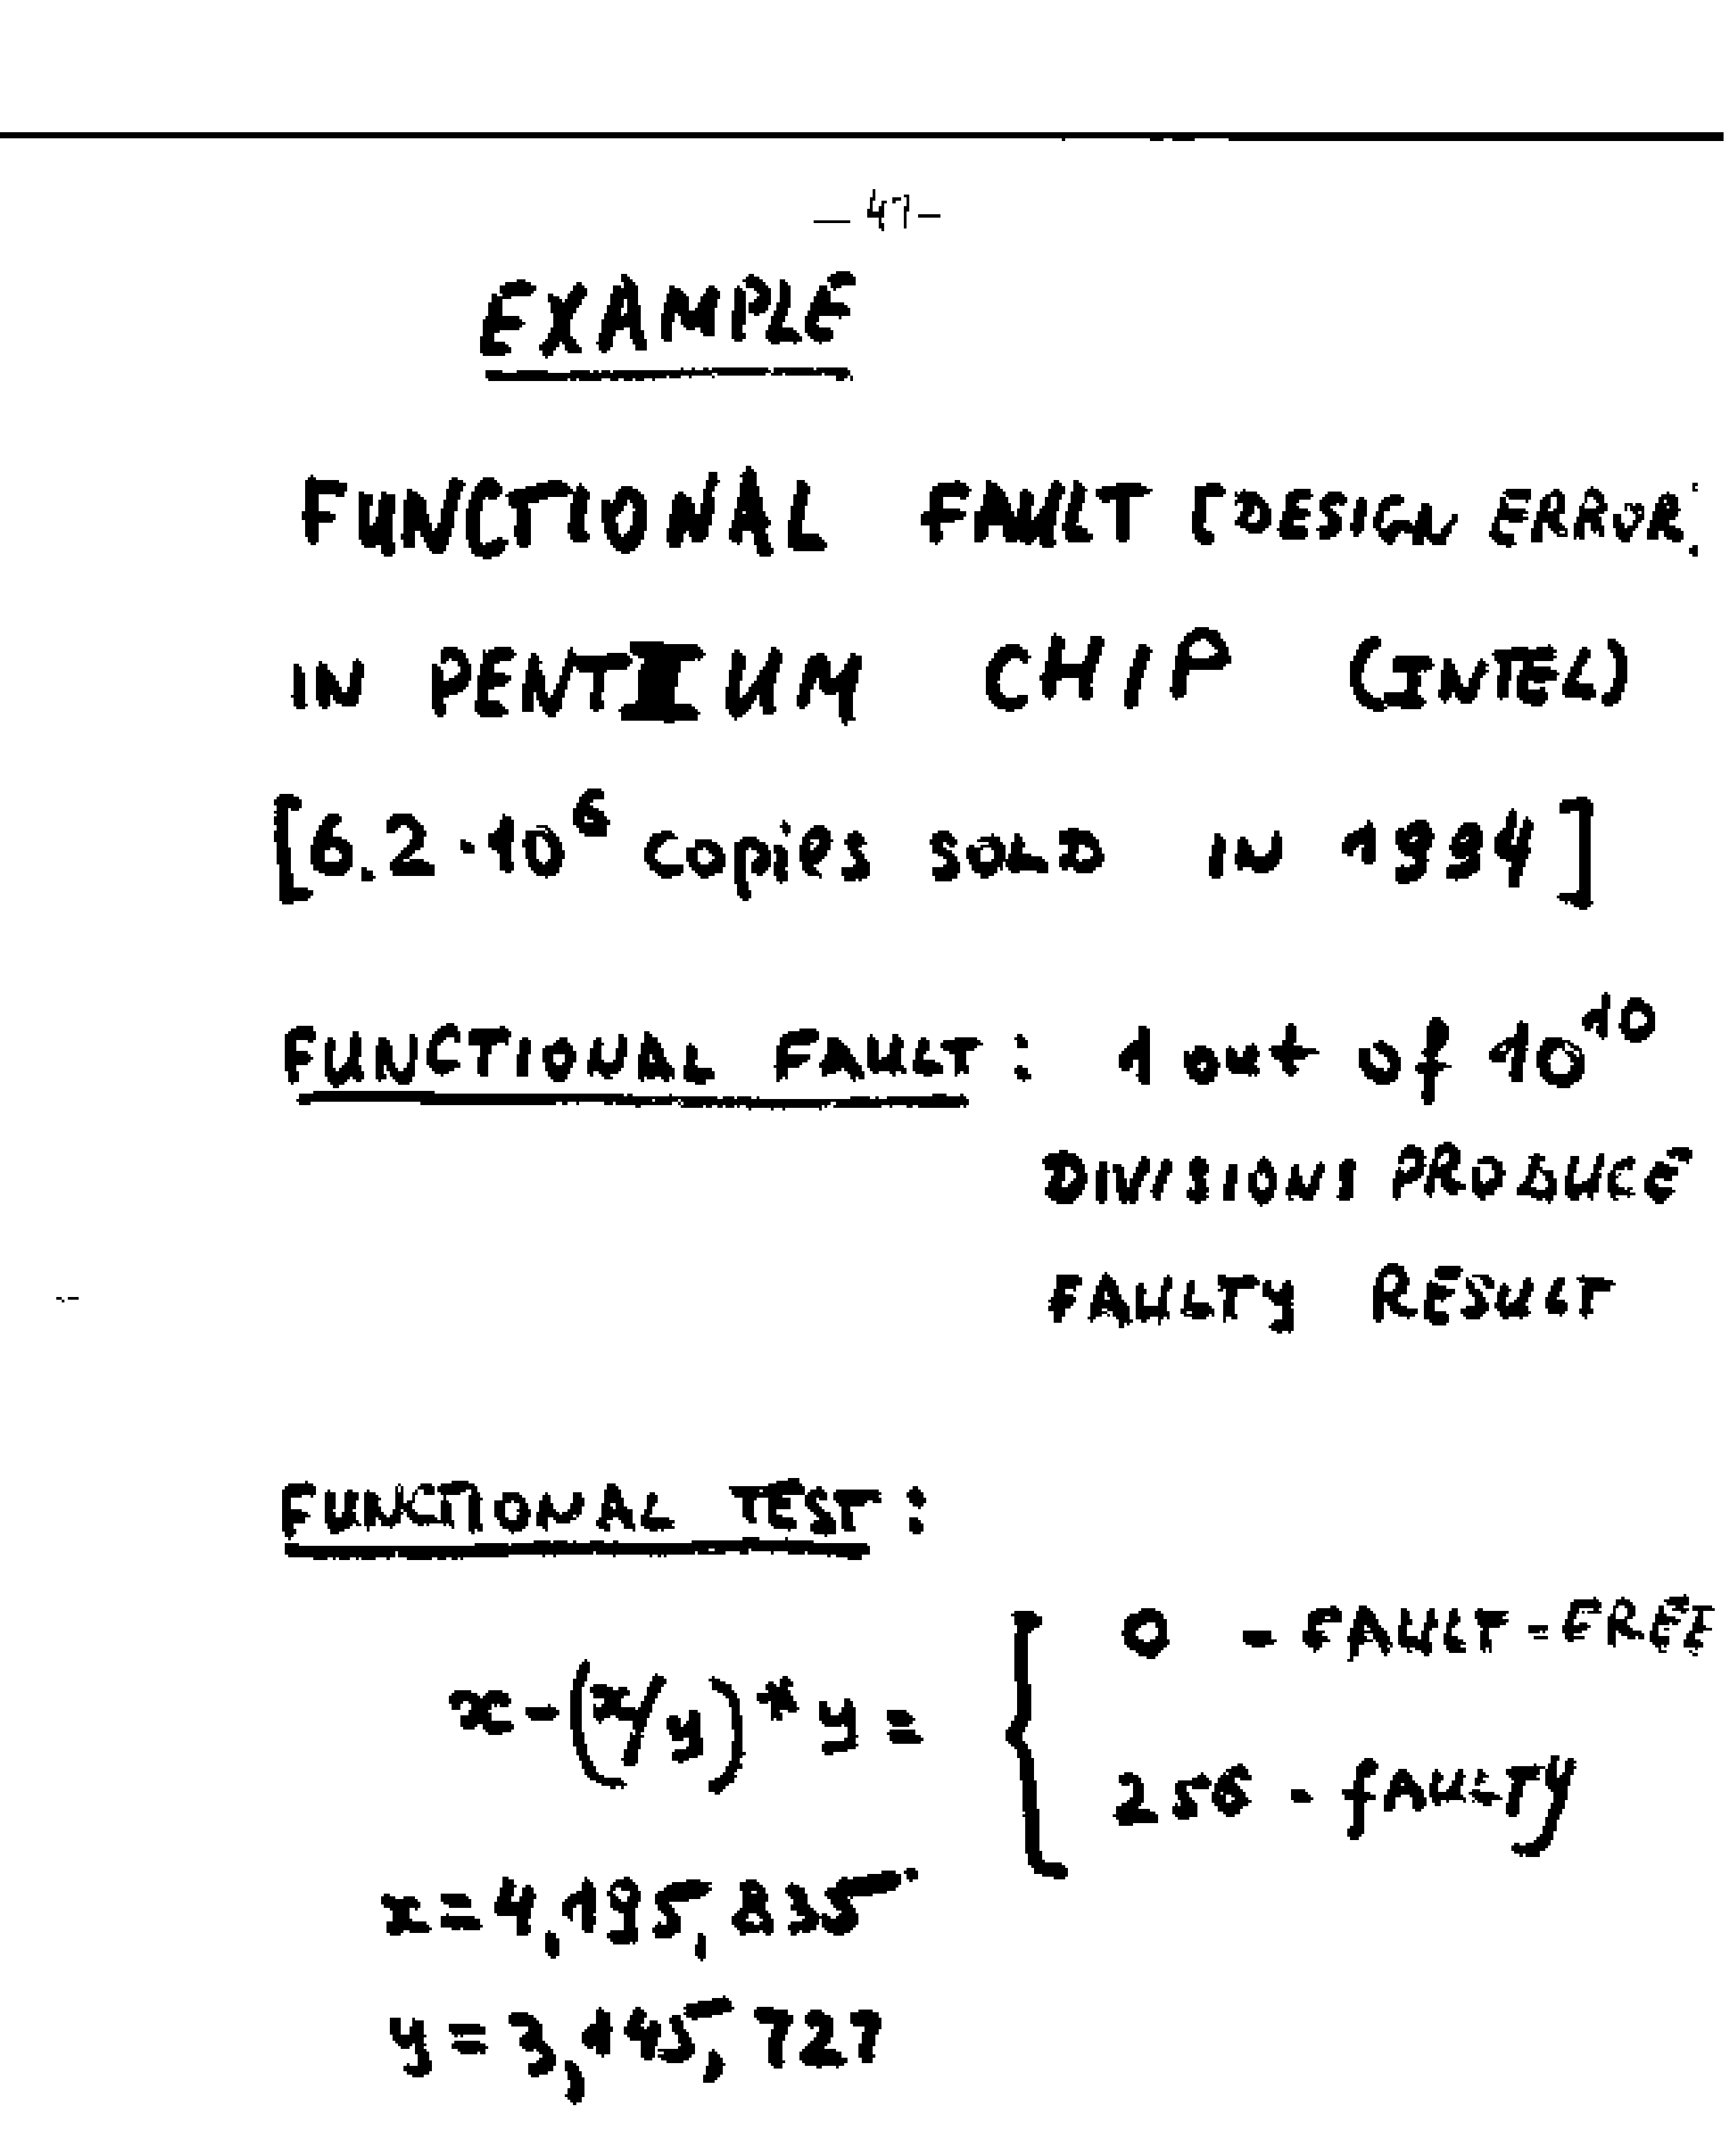 — 47 –
EXAMPLE
FUNCTIONAL FAULT [DESIGN ERROR]
IN PENTIUM CHIP (INTEL)
[6.2·10⁶ copies SOLD IN 1994]
FUNCTIONAL FAULT: 1 out of 10¹⁰
DIVISIONS PRODUCE
FAULTY RESULT
FUNCTIONAL TEST:
0 - FAULT-FREE
x-(x/y)*y= {
256 - fAULTY
x=4,195,835
y=3,145,727